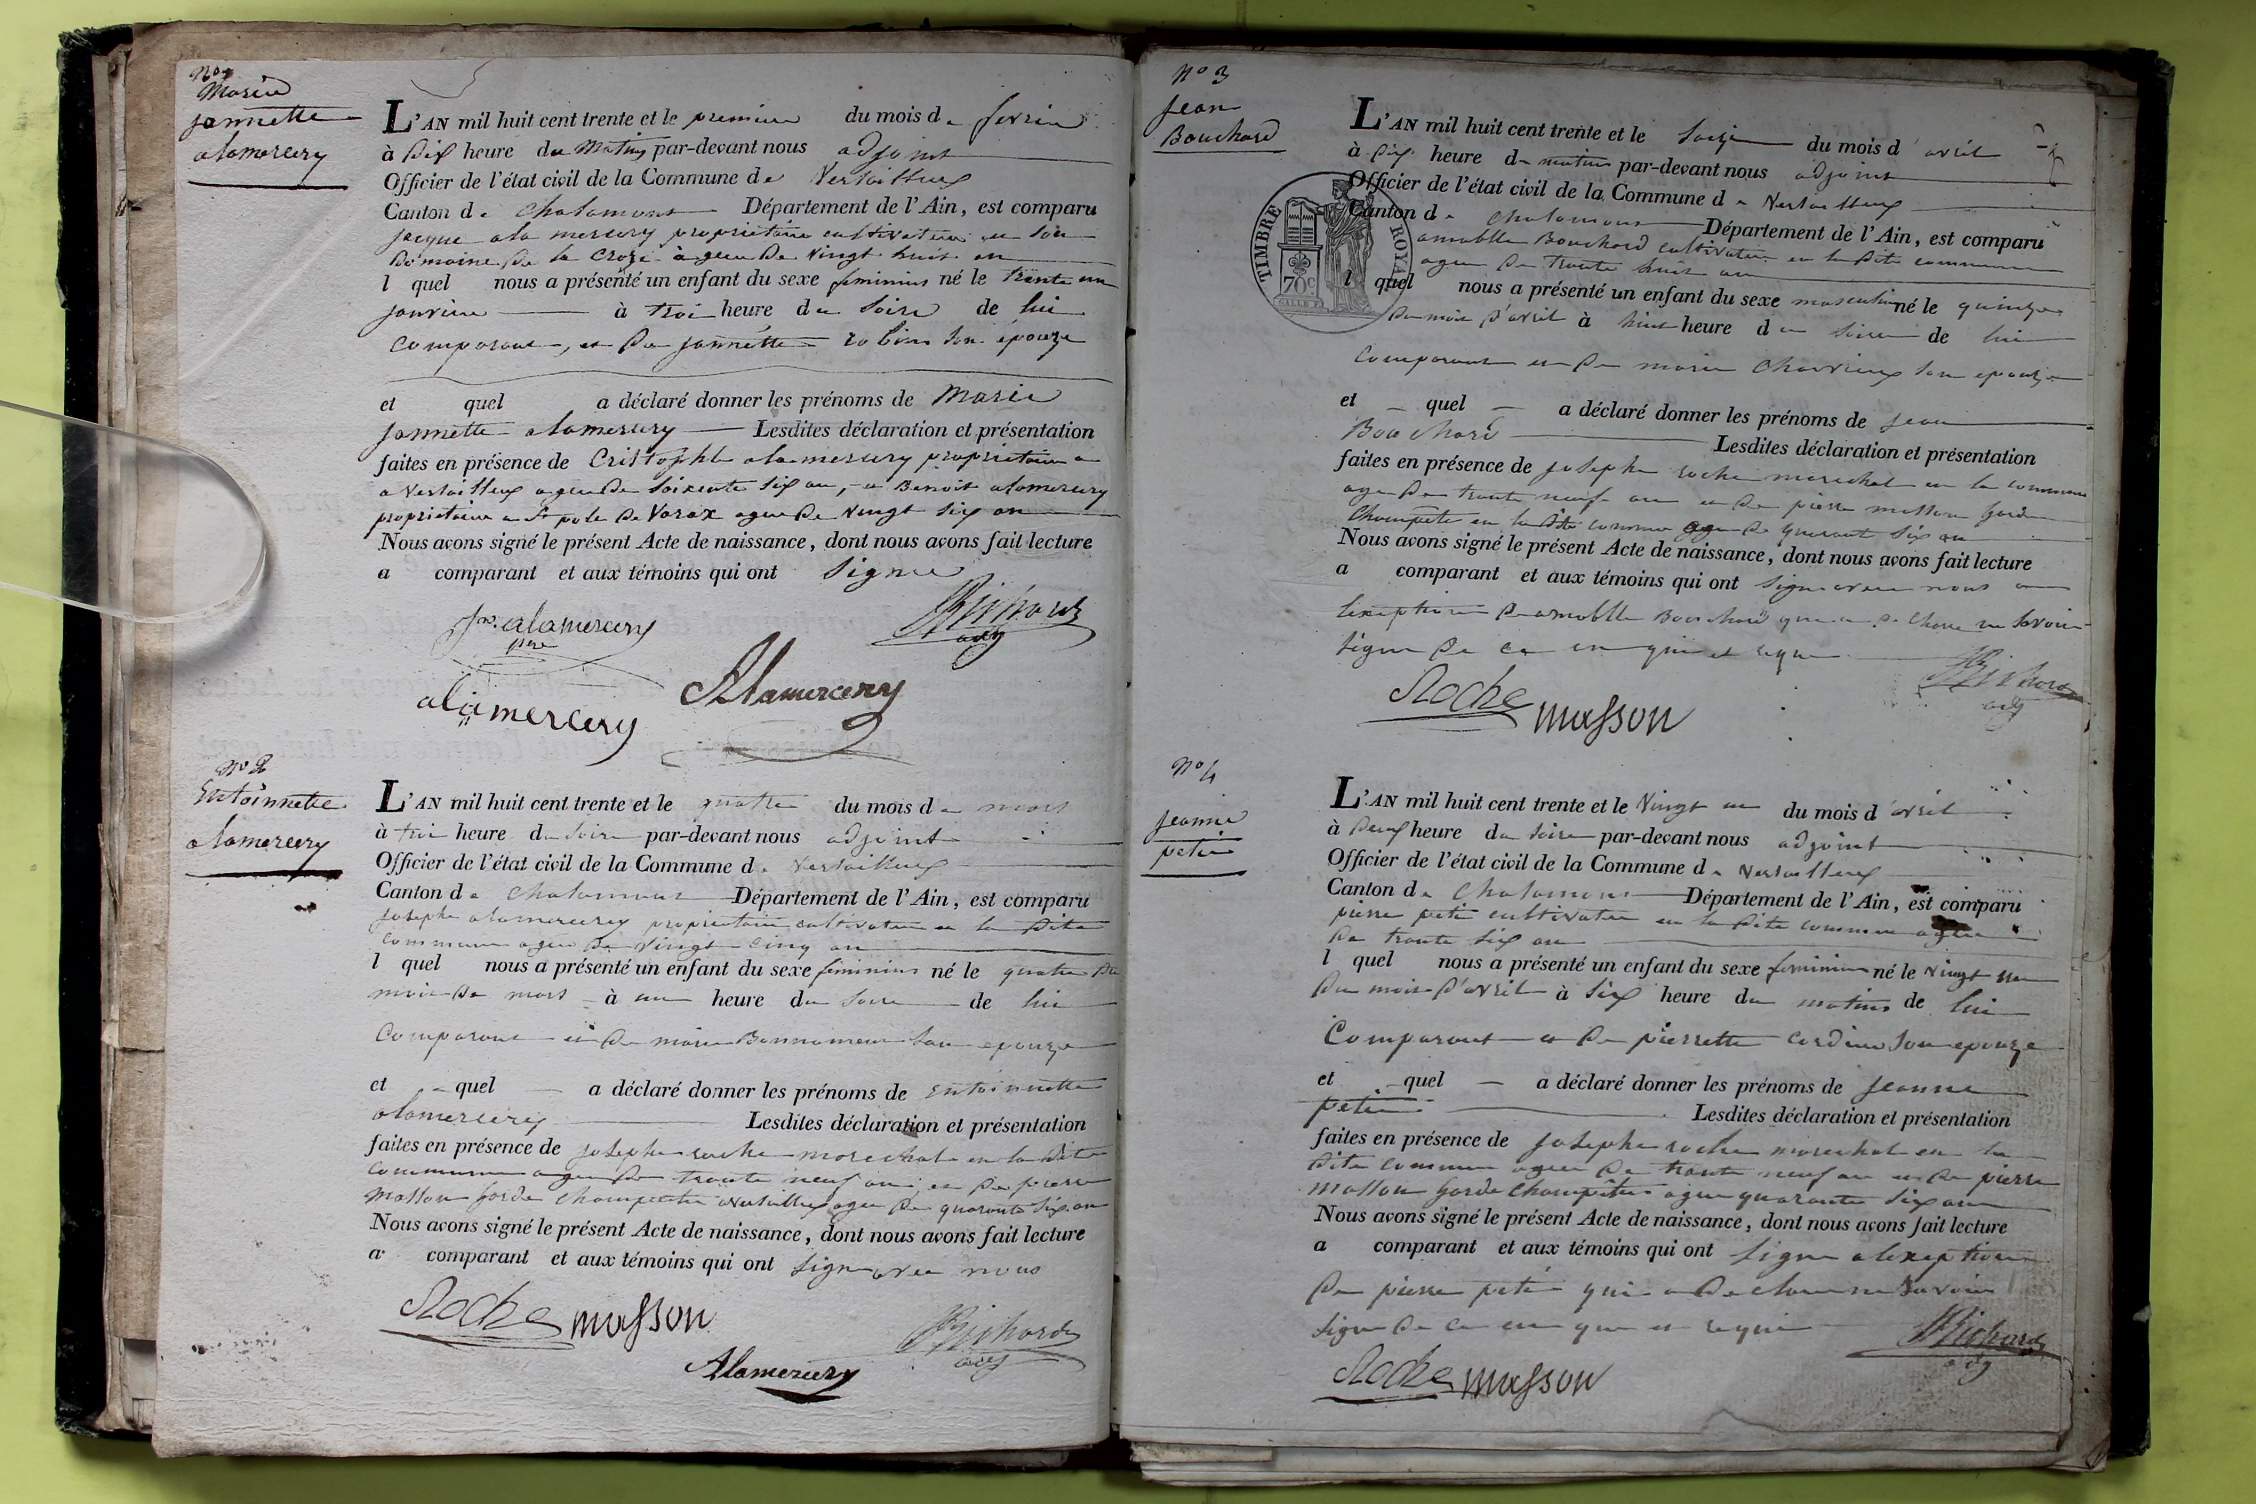 No 1
Marie
jannette
alamercery
L'AN mil huit cent trente et le premier du mois de fevrier
à dix heure du Matin par-devant nous adjoint
Officier de l'état civil de la Commune de Versailleux
Canton de chalamont Département de l'Ain, est comparu
jacque alamercery propriétaire cultivateur en son
Domaine de la Croze agee de vingt huit an
l quel nous a présenté un enfant du sexe feminins né le trente un
janvier à troi heure du Soire de lui
comparant, et de jannette robin son épouze
et quel a déclaré donner les prénoms de Marie
jannette alamercery Lesdites déclaration et présentation
faites en présence de Cristophle alamercery propriétaire
a versailleux agee de soixente six an, et Benoit alamercery
propriétaire a St pole de Varax agee de vingt six an
Nous avons signé le présent Acte de naissance, dont nous avons fait lecture
a comparant et aux témoins qui ont signee
Jn. alamercery
père
Richard
adj
alamercery
Alamercery
No 2
Entoinnette
alamercery
L'AN mil huit cent trente et le quatre du mois de mars
à troi heure du soire par-devant nous adjoint
Officier de l'état civil de la Commune de Versailleux
Canton de chalamont Département de l'Ain, est comparu
josephe alamercery propriétaire cultivateur en la Dite
commune agee de vingt cinq an
l quel nous a présenté un enfant du sexe feminins né le quatre du
mois de mars à une heure du soire de lui
comparant et de marie Bonnamour son epouze
et quel a déclaré donner les prénoms de entoinnette
alamercery Lesdites déclaration et présentation
faites en présence de josephe roche marechal en la dite
commune agee de trante neuf an, et de pierre
masson garde champetre a versailleux agee de quarante six an
Nous avons signé le présent Acte de naissance, dont nous avons fait lecture
a comparant et aux témoins qui ont signe avec nous
Roche masson
Richard
adj
Alamercery
No 3
jean
Bouchard
L'AN mil huit cent trente et le saize du mois d avril
à dix heure de matin par-devant nous adjoint
Officier de l'état civil de la Commune de Versailleux
Canton de chalamont Département de l'Ain, est comparu
amablle Bouchard cultivateur en la dite commune
agee de trante huit an
l quel nous a présenté un enfant du sexe masculin né le quinze
du mois d'avril à huit heure du soire de lui
comparant et de marie Chavrieux son epouze
et quel a déclaré donner les prénoms de jean
Bouchard Lesdites déclaration et présentation
faites en présence de josephe roche marechal en la commune
age de trante neuf an et de pierre masson garde
Champete en la dite commune age de quarant six an
Nous avons signé le présent Acte de naissance, dont nous avons fait lecture
a comparant et aux témoins qui ont signe avec nous a
lexeption de amablle Bouchard qui a declare ne savoir
signe de ce en qui et requi
Richard
adj
Roche masson
TIMBRE ROYAL
70c
No 4
jeanne
petit
L'AN mil huit cent trente et le vingt un du mois d'avril
à deux heure du soire par-devant nous adjoint
Officier de l'état civil de la Commune de Versailleux
Canton de Chalamont Département de l'Ain, est comparu
pierre petit cultivateur en la dite commune agee
de trante six an
l quel nous a présenté un enfant du sexe feminin né le vingt un
du mois d'avril à six heure du matins de lui
Comparant et de pierrette cordier son epouze
et quel a déclaré donner les prénoms de jeanne
petit Lesdites déclaration et présentation
faites en présence de josephe roche marechal en la
dite commune agee de trante neuf an et de pierre
masson garde champetre agee quarante six an
Nous avons signé le présent Acte de naissance, dont nous avons fait lecture
a comparant et aux témoins qui ont signe a lexeption
de pierre petit qui a declare ne savoir
signe de ce en que et requi
Richard
adj
Roche masson